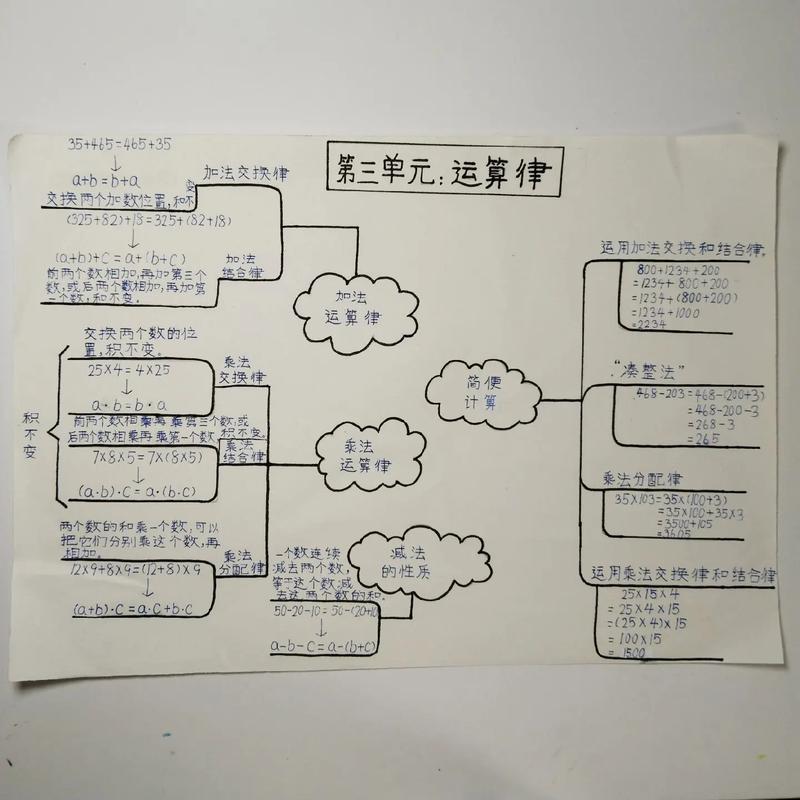 第三单元：运算律
35+465=465+35
↓
a+b=b+a
交换两个加数位置，和不变
加法交换律
(325+82)+18=325+(82+18)
↓
(a+b)+c=a+(b+c)
前两个数相加，再加第三个
数，或后两个数相加，再加第
一个数，和不变。
加法
结合律
加法
运算律
交换两个数的位
置，积不变。
25×4=4×25
↓
a·b=b·a
乘法
交换律
积不变
前两个数相乘再乘第三个数，或
后两个数相乘再乘第一个数
积不变。
7×8×5=7×(8×5)
↓
(a·b)·c=a·(b·c)
乘法
结合律
乘法
运算律
两个数的和乘一个数，可以
把它们分别乘这个数，再
相加。
12×9+8×9=(12+8)×9
↓
(a+b)·c=a·c+b·c
乘法
分配律
减法
的性质
一个数连续
减去两个数，
等于这个数减
去这两个数的和。
50-20-10=50-(20+10
↓
a-b-c=a-(b+c)
简便
计算
运用加法交换和结合律。
800+1234+200
=1234+800+200
=1234+(800+200)
=1234+1000
=2234
“凑整法”
468-203=468-(200+3)
=468-200-3
=268-3
=265
乘法分配律
35×103=35×(100+3)
=35×100+35×3
=3500+105
=3605
运用乘法交换律和结合律
25×15×4
=25×4×15
=(25×4)×15
=100×15
=1500